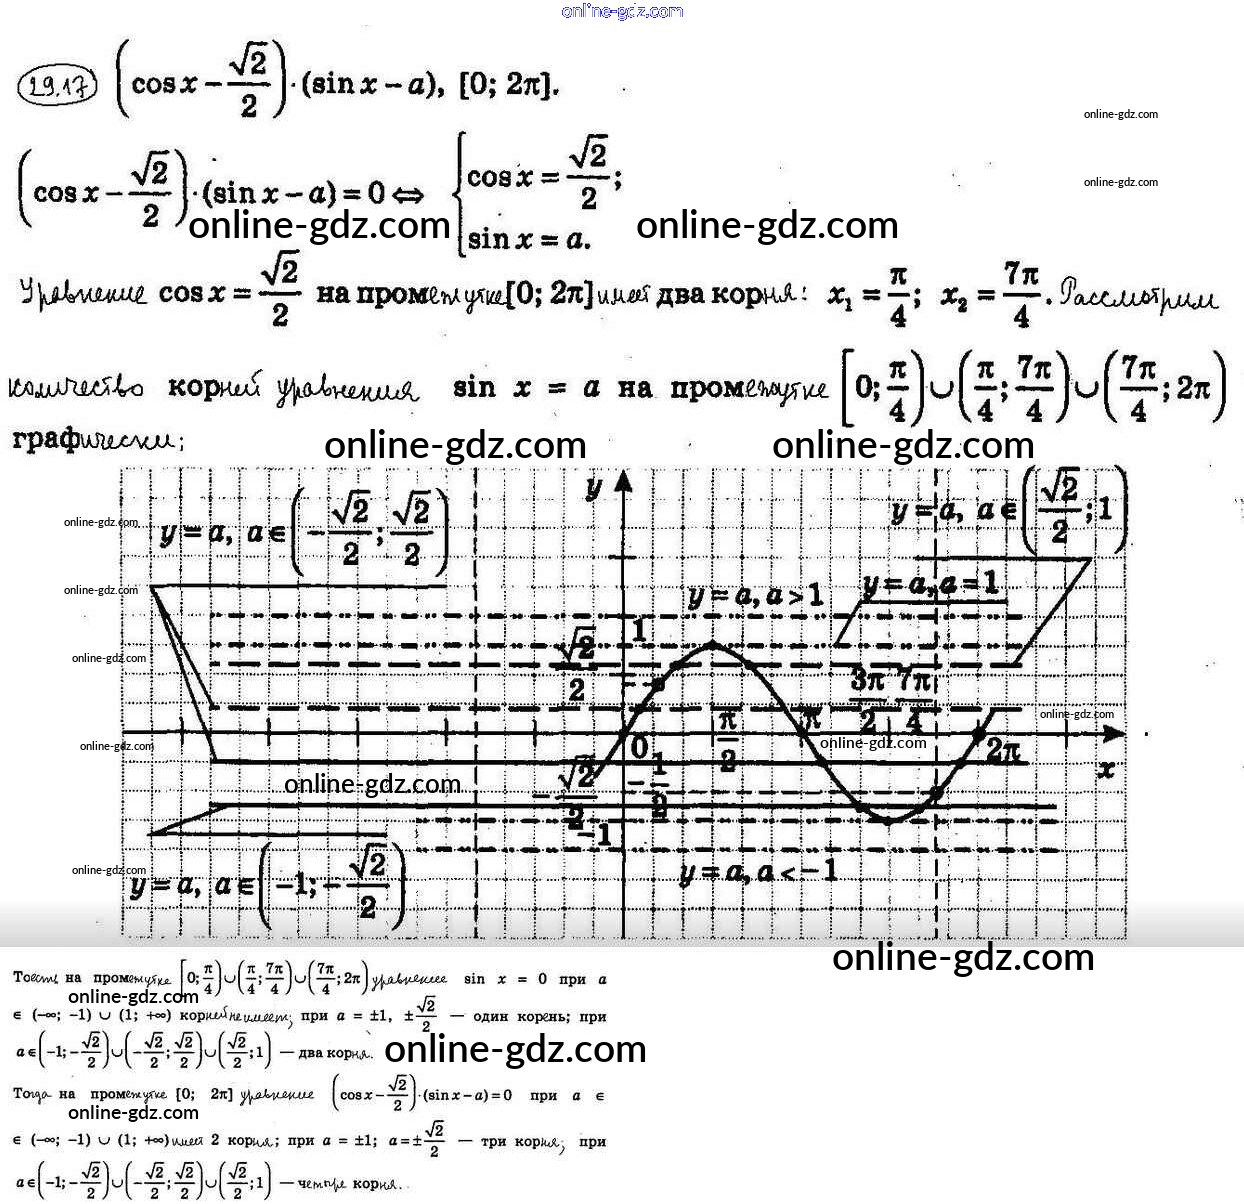 online-gdz.com
29.17 (cos x − √2/2)·(sin x − a), [0; 2π].
online-gdz.com
(cos x − √2/2)·(sin x − a) = 0 ⇔ { cos x = √2/2; sin x = a.
online-gdz.com
online-gdz.com online-gdz.com
Уравнение cos x = √2/2 на промежутке [0; 2π] имеет два корня: x₁ = π/4; x₂ = 7π/4. Рассмотрим
количество корней уравнения sin x = a на промежутке [0; π/4) ∪ (π/4; 7π/4) ∪ (7π/4; 2π)
графически;
online-gdz.com online-gdz.com
y = a, a ∈ (−√2/2; √2/2)
y
y = a, a ∈ (√2/2; 1)
online-gdz.com
online-gdz.com
y = a, a > 1
y = a, a = 1
1
√2/2
online-gdz.com
3π/2 7π/4
π/2
π
online-gdz.com
online-gdz.com
0
online-gdz.com
2π
x
online-gdz.com
−√2/2
−1/2
−1
online-gdz.com
y = a, a ∈ (−1; −√2/2)
y = a, a < −1
online-gdz.com
То есть на промежутке [0; π/4) ∪ (π/4; 7π/4) ∪ (7π/4; 2π) уравнение sin x = 0 при a
online-gdz.com
∈ (−∞; −1) ∪ (1; +∞) корней не имеет; при a = ±1, ±√2/2 — один корень; при
a ∈ (−1; −√2/2) ∪ (−√2/2; √2/2) ∪ (√2/2; 1) — два корня.
online-gdz.com
Тогда на промежутке [0; 2π] уравнение (cos x − √2/2)·(sin x − a) = 0 при a ∈
online-gdz.com
∈ (−∞; −1) ∪ (1; +∞) имеет 2 корня; при a = ±1; a = ±√2/2 — три корня; при
a ∈ (−1; −√2/2) ∪ (−√2/2; √2/2) ∪ (√2/2; 1) — четыре корня.